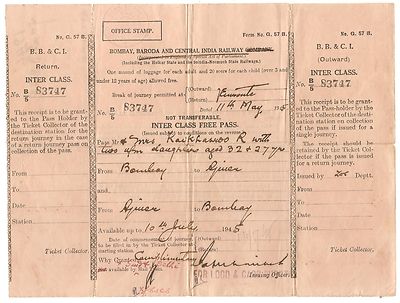 No. G. 57 B.
B. B. & C. I.
Return.
INTER CLASS.
No. B/5 83747
This receipt is to be granted to the Pass Holder by the Ticket Collector of the destination station for the return journey in the case of a return journey pass on collection of the pass.
From
To
Dated
Station
Ticket Collector.
OFFICE STAMP.
Form No. G. 57 B.
BOMBAY, BARODA AND CENTRAL INDIA RAILWAY COMPANY.
(Including the and the State Railways.)
One maund of luggage for each adult and 20 seers for each child (over 3 and under 12 years of age) allowed free.
Break of journey permitted at (Outward)
(Return)
No. B/5 83747
Dated 11th May 1945
NOT TRANSFERABLE.
INTER CLASS FREE PASS.
(Issued subject to conditions on the reverse)
Pass Mr & Mrs R with
two daughters aged 32 & 27 yrs
From Bombay to
From to Bombay
Available up to 10th July 1945
Date of commencement of journey
to be filled in by the Ticket Collector of the starting station.
Why Granted Complimentary
Not available by Mail Train.
Issuing Officer.
No. G. 57 B.
B. B. & C. I.
(Outward)
INTER CLASS.
No. B/5 83747
This receipt is to be granted to the Pass-holder by the Ticket Collector of the destination station on collection of the pass if issued for a single journey.
The receipt should be retained by the Ticket Collector if the pass is issued for a return journey.
Issued by Deptt.
From
To
Dated
Station
Ticket Collector.